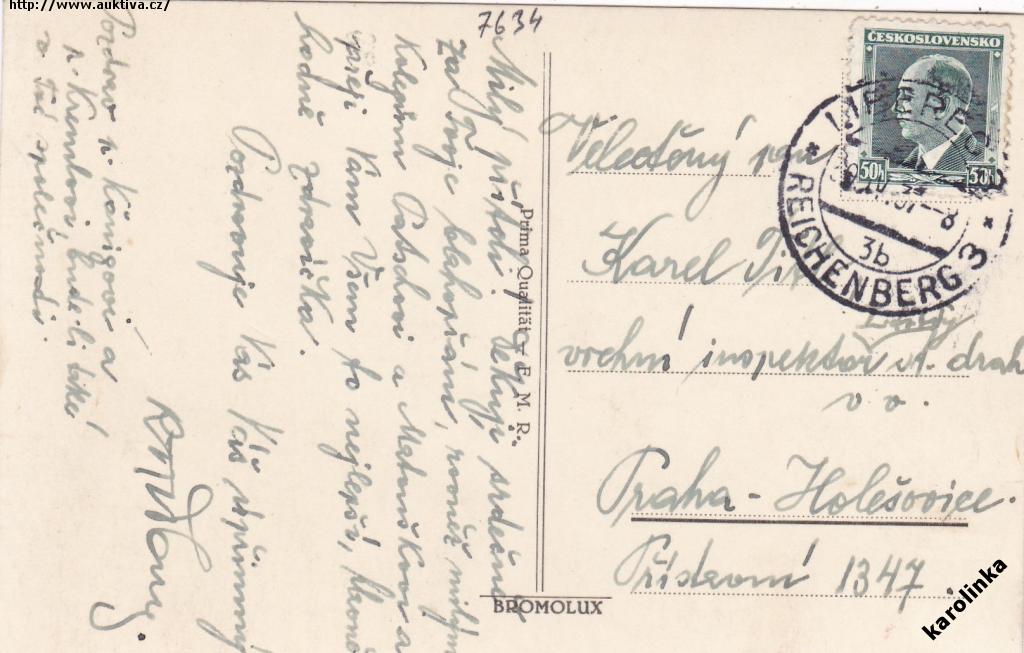 http://www.auktiva.cz/
7634
Milý příteli! Děkuji srdečně
za Tvoje blahopřání, rovněž milým
kolegům Patschovi a Matouškovi a
přeji Vám Všem to nejlepší, hlavně
hodně zdravíčka.
Pozdravuje Vás Váš upřímný
Pozdrav p. Königovi a
p. Kremlovi,
a té společnosti
Prima Qualität - E. M. R.
BROMOLUX
ČESKOSLOVENSKO
50h 50h
LIBEREC
REICHENBERG 3
3b
Veléctěný pan
Karel
vrchní inspektor st. drah
v. v.
Praha - Holešovice.
Přístavní 1347.
karolinka